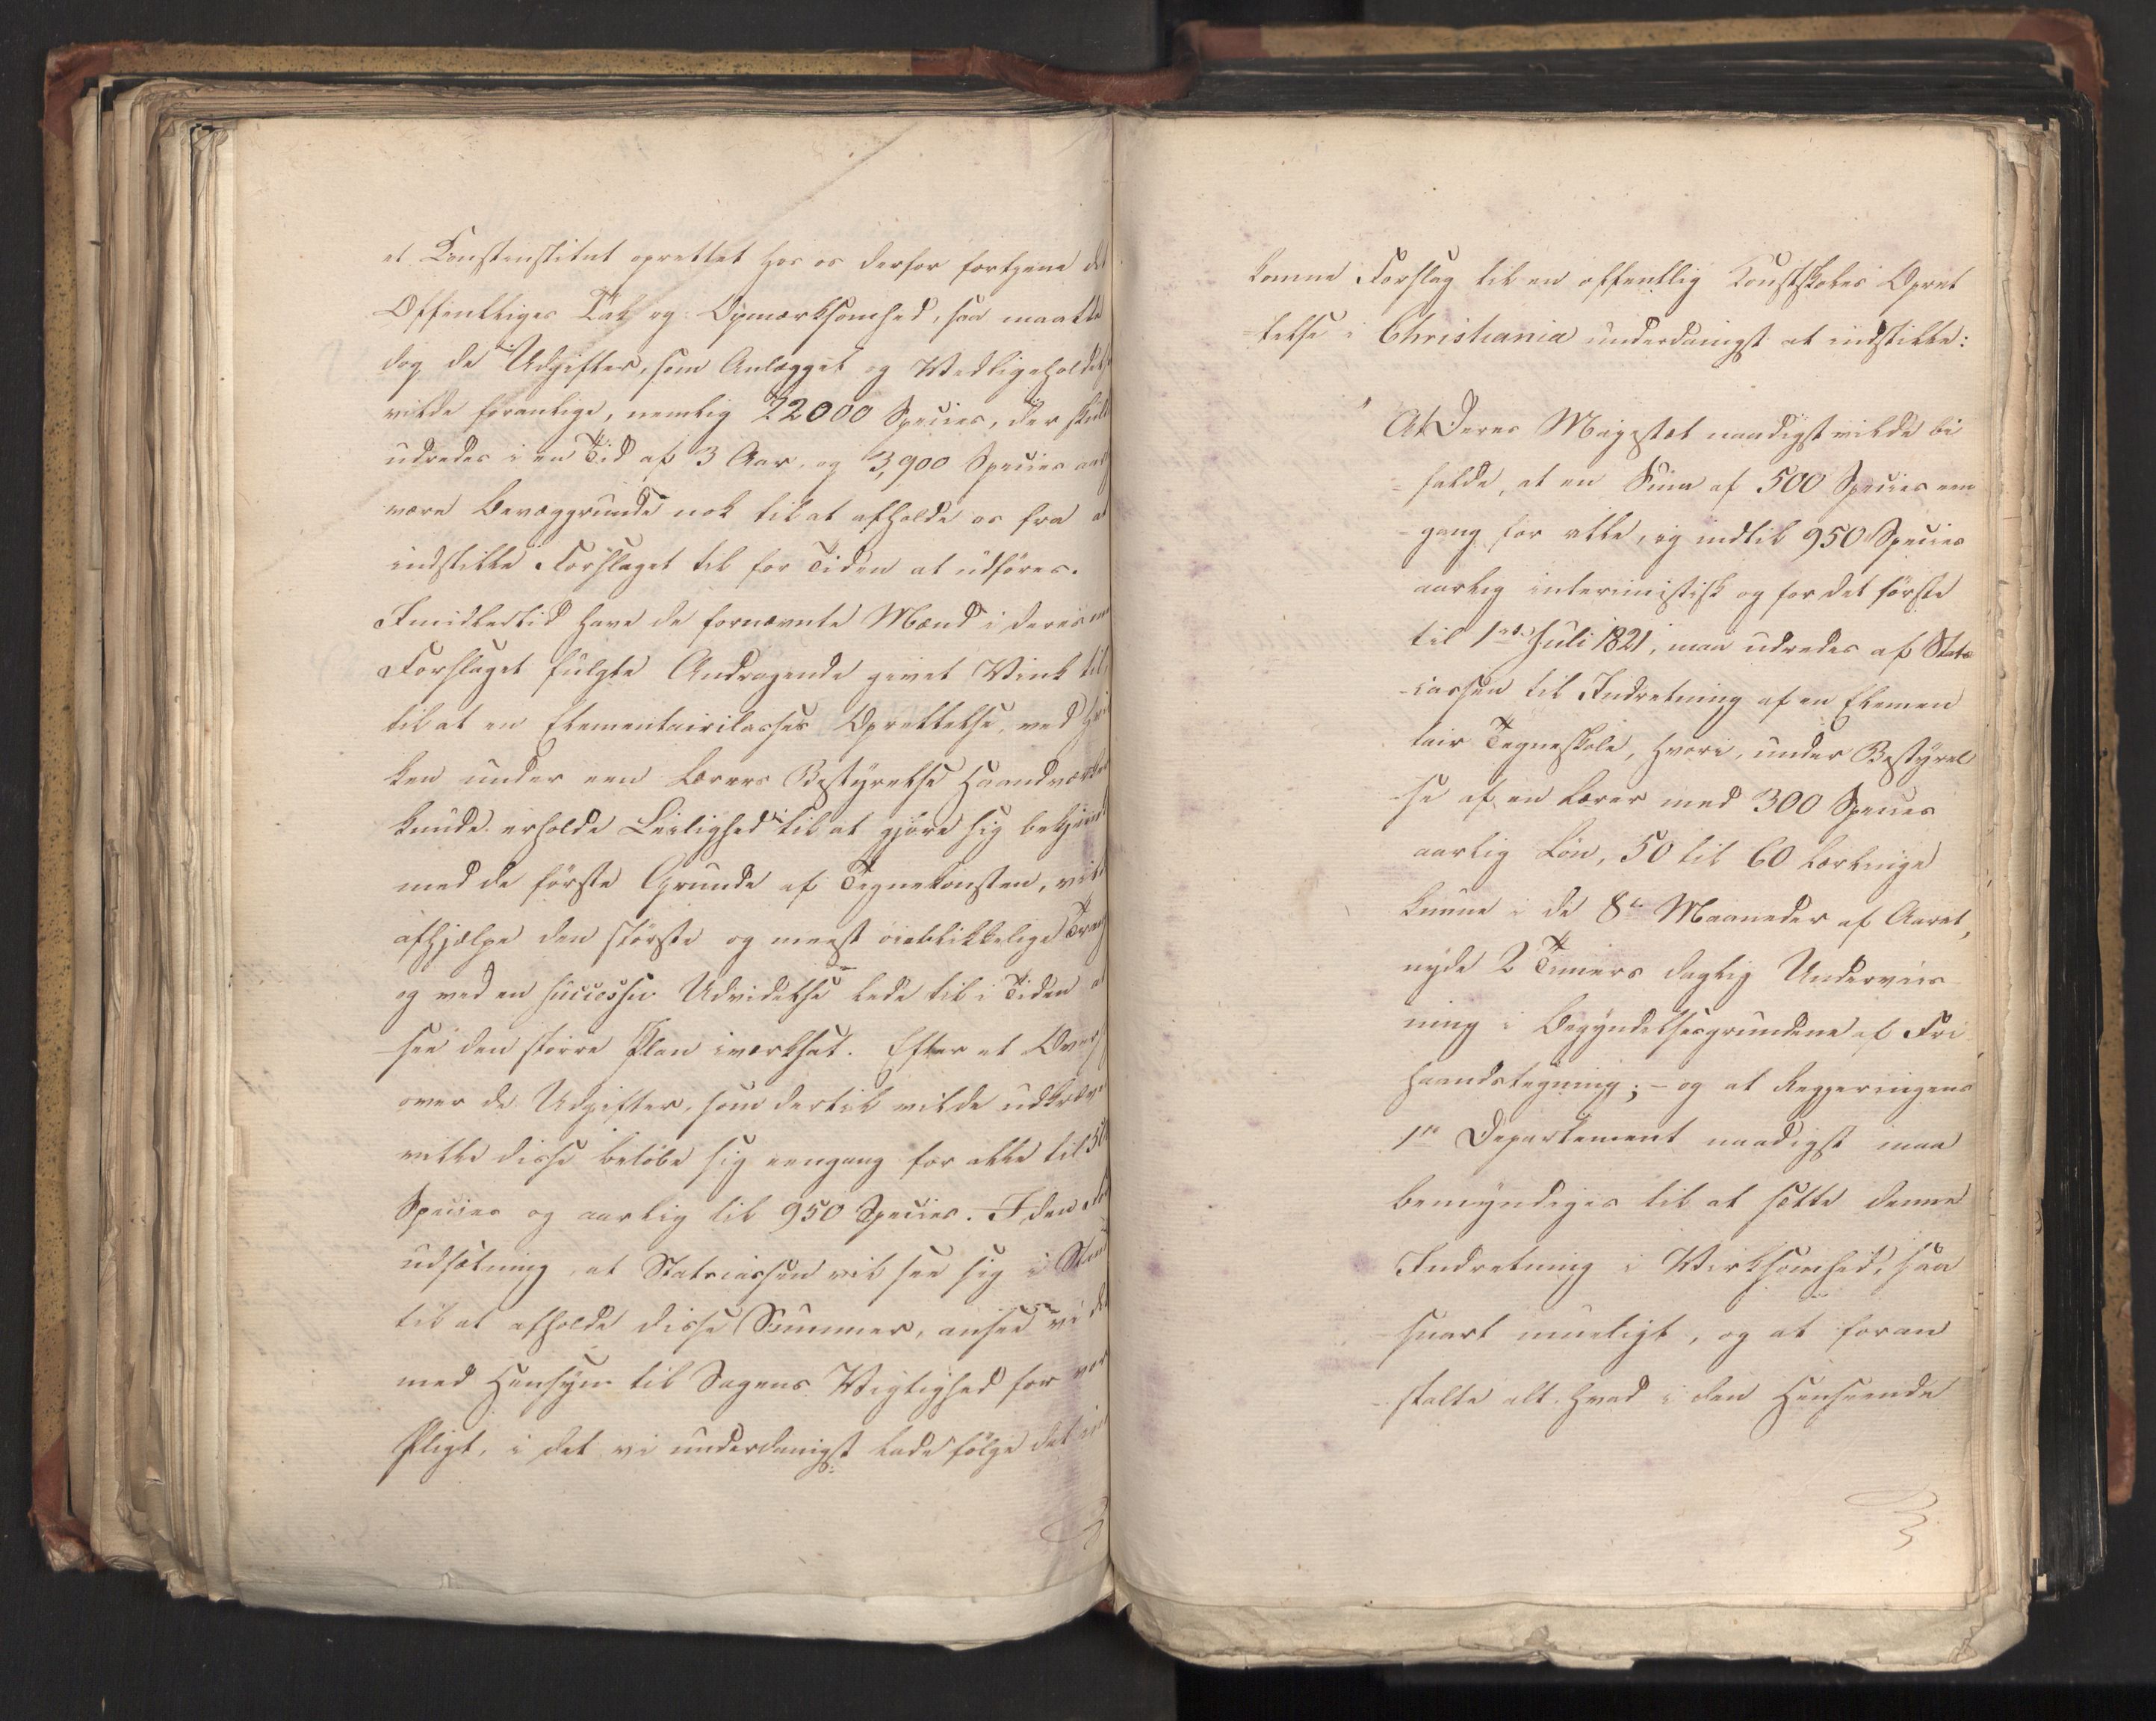 et Konstinstitut oprettet hos os derfor fortjene det
Offentliges Tak og Opmærksomhed, saa maatte
dog de Udgifter, som Anlægget og Vedligeholdelse
vilde foranlige, nemlig 22000 Species, der skulle
udredes i en Tid af 3 Aar, og 3,900 Species aarlig
være Bevæggrunde nok til at afholde os fra at
indstille Forslaget til for Tiden at udføres.
Imidlertid have de fornævnte Mænd i deres med
Forslaget fulgte Andragende givet Vink til
til at en Elementairclasses Oprettelse, ved hvil
ken under een Lærers Bestyrelse Haandværkere
kunde erholde Leilighed til at gjøre sig bekjendt
med de første Grunde af Tegnekonsten, vilde
afhjælpe den største og meest øieblikkelige Trang
og ved en successiv Udvidelse lede til i Tiden at
see den større Plan iværksat. Efter et Overslag
over de Udgifter, som dertil vilde udkræves
ville disse beløbe sig eengang for alle til 500
Species og aarlig til 950 Species. I den For
udsætning, at Statscassen vil see sig i Stand
til at afholde disse Summer, ansee vi det
med Hensyn til Sagens Vigtighed for vor
Pligt, i det vi underdanigst lade følge det ind
komne Forslag til en offentlig Konstskoles Opret
telse i Christiania underdanigst at indstille:
At Deres Majestæt naadigst vilde bi
falde, at en Sum af 500 Species een
gang for alle, og indtil 950 Species
aarlig interimistisk og for det første
til 1ste Juli 1821, maa udredes af Stats
cassen til Indretning af en Elemen
tair Tegneskole, hvori, under Bestyrel
se af en Lærer med 300 Species
aarlig Løn, 50 til 60 Lærlinge
kunne i de 8te Maaneder af Aaret,
nyde 2 Timers daglig Underviis
ning i Begyndelsesgrundene af Fri
haandstegning; – og at Regjeringens
1ste Departement naadigst maa
bemyndiges til at sætte denne
Indretning i Virksomhed, saa
snart mueligt, og at foran
stalte alt hvad i den Henseende